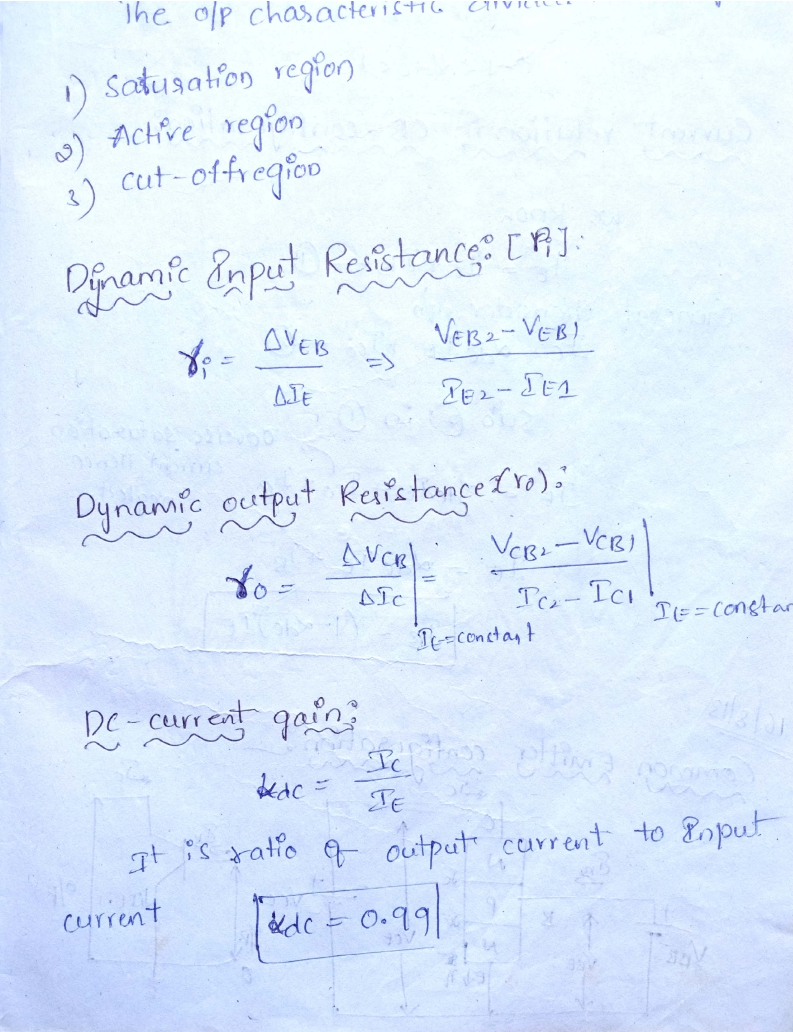 The o/p characteristic
1) Saturation region
2) Active region
3) cut-off region
Dynamic Input Resistance: [ri]:
ri = ΔVEB / ΔIE => VEB2 - VEB1 / IE2 - IE1
Dynamic output Resistance (ro):
ro = ΔVCB / ΔIC | IE = constant = VCB2 - VCB1 / IC2 - IC1 | IE = constan
DC-current gain:
αdc = IC / IE
It is ratio of output current to Input
current αdc = 0.99